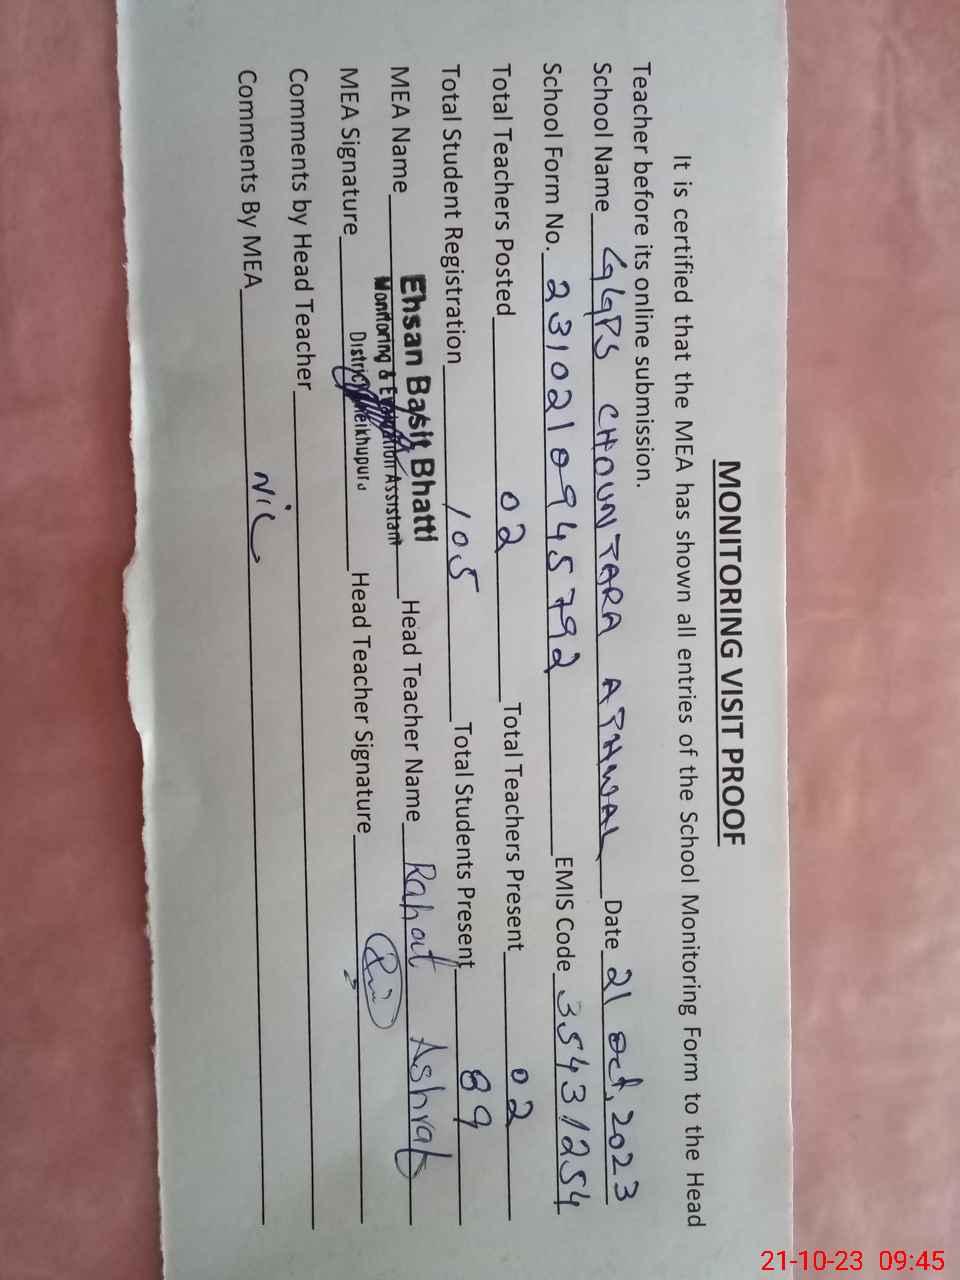 MONITORING VISIT PROOF
It is certified that the MEA has shown all entries of the School Monitoring Form to the Head
Teacher before its online submission.
School Name GGPS CHOUNTARA APHWAL Date 21 Oct, 2023
School Form No. 2310210945792 EMIS Code 35431254
Total Teachers Posted 02 Total Teachers Present 02
Total Student Registration 105 Total Students Present 89
MEA Name Ehsan Basit Bhatti Head Teacher Name Rahat Ashraf
Monitoring & Evaluation Assistant
MEA Signature District Sheikhupura Head Teacher Signature
Comments by Head Teacher
Comments By MEA NiL
21-10-23 09:45